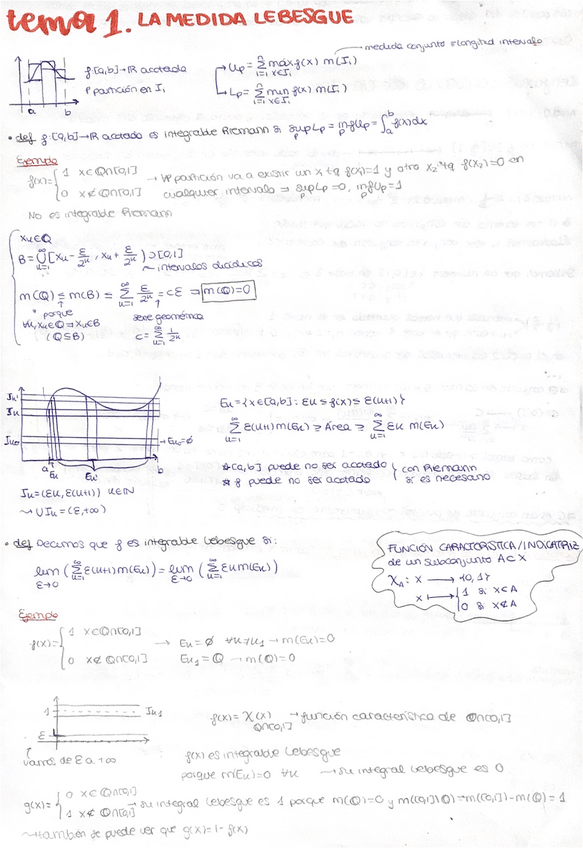 tema 1. LA MEDIDA LEBESGUE
medida conjunto = longitud intervalo
f:[a,b]→ℝ acotada
P partición en I_i
U_P = Σ_{i=1}^n max_{x∈I_i} f(x) m(I_i)
L_P = Σ_{i=1}^n min_{x∈I_i} f(x) m(I_i)
a b
• def f:[a,b]→ℝ acotada es integrable Riemann si sup_P L_P = inf_P U_P = ∫_a^b f(x)dx
Ejemplo
f(x)= { 1 x∈ℚ∩[0,1]
0 x∉ℚ∩[0,1]
→ ∀P partición va a existir un x tq f(x)=1 y otro x_2 tq f(x_2)=0 en
cualquier intervalo ⇒ sup L_P=0, inf_P U_P=1
No es integrable Riemann
x_n∈ℚ
B = ∪_{n=1}^∞ [x_n - ε/2^n, x_n + ε/2^n) ⊃[0,1]
~ intervalos diádicos
m(ℚ) ≤ m(B) = Σ_{n=1}^∞ ε/2^n = cε ⇒ m(ℚ)=0
porque
∀n, x_n∈ℚ ⇒ x_n∈B
(ℚ⊆B)
serie geométrica
c = Σ_{n=1}^∞ 1/2^n
→ E_{n0}=∅
a E_n E_n b
J_n=(εn, ε(n+1)) n∈ℕ
⇝ ∪J_n = (ε,+∞)
E_n = {x∈[a,b] : εn ≤ f(x) ≤ ε(n+1)}
Σ_{n=1}^∞ ε(n+1) m(E_n) ≥ Área ≥ Σ_{n=1}^∞ εn m(E_n)
* [a,b] puede no ser acotado
* f puede no ser acotado
} con Riemann
sí es necesario
• def Decimos que f es integrable Lebesgue si:
lim_{ε→0} (Σ_{n=1}^∞ ε(n+1) m(E_n)) = lim_{ε→0} (Σ_{n=1}^∞ εn m(E_n))
FUNCIÓN CARACTERÍSTICA/INDICATRIZ
de un subconjunto A⊂X
χ_A : X → {0,1}
x ↦ { 1 si x∈A
0 si x∉A
Ejemplo
f(x)= { 1 x∈ℚ∩[0,1]
0 x∉ℚ∩[0,1]
→ E_n = ∅ ∀n≠n_1 → m(E_n)=0
E_{n1} = ℚ → m(ℚ)=0
1 J_{n1}
ε
vamos de ε a +∞
f(x) = χ_{ℚ∩[0,1]}(x) → función característica de ℚ∩[0,1]
f(x) es integrable Lebesgue
porque m(E_n)=0 ∀n → su integral Lebesgue es 0
g(x)= { 0 x∈ℚ∩[0,1]
1 x∉ℚ∩[0,1]
→ su integral Lebesgue es 1 porque m(ℚ)=0 y m([0,1]\ℚ)=m([0,1])-m(ℚ) = 1
⇝ también se puede ver que g(x)=1-f(x)